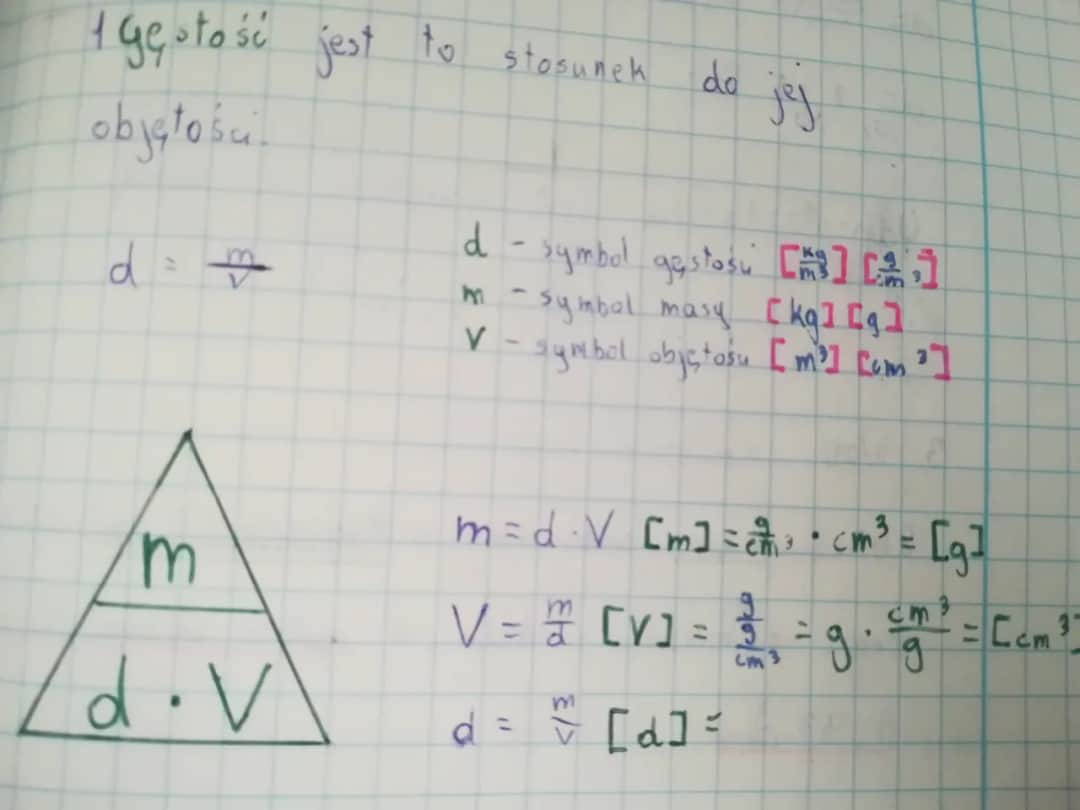 1 Gęstość jest to stosunek do jej
objętości.
d = m/V
d - symbol gęstości [kg/m³] [g/cm³]
m - symbol masy [kg] [g]
V - symbol objętości [m³] [cm³]
m
d · V
m = d · V [m] = g/cm³ · cm³ = [g]
V = m/d [V] = g/(g/cm³) = g · cm³/g = [cm³]
d = m/V [d] =